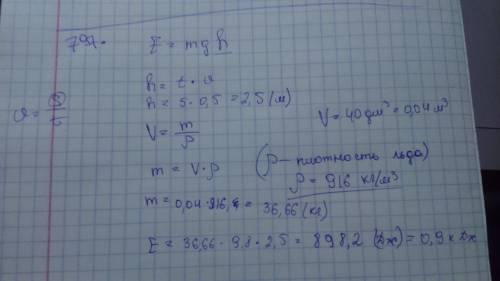 797.
E = mgh
v = S/t
h = t · v
h = 5 · 0,5 = 2,5 (м)
V = m/ρ
V = 40 дм³ = 0,04 м³
m = V · ρ
(ρ — плотность льда)
ρ = 916 кг/м³
m = 0,04 · 916, = 36,66 (кг)
E = 36,66 · 9,8 · 2,5 = 898,2 (Дж) = 0,9 кДж